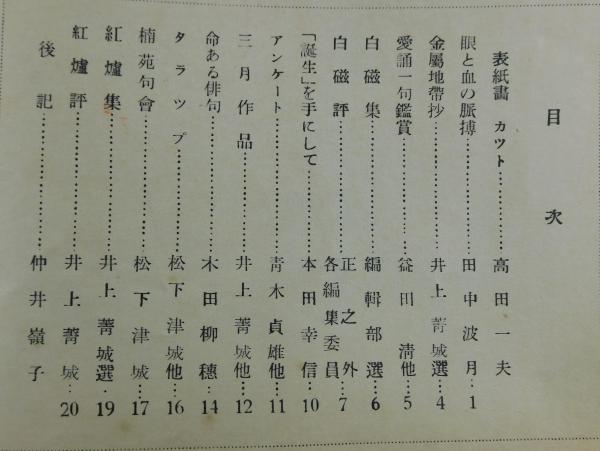 目次
表紙畫 カツト…………高田一夫
眼と血の脈搏…………田中波月…1
金屬地帶抄…………井上菁城選…4
愛誦一句鑑賞…………益田清他…5
白磁集…………編輯部選…6
白磁評…………正之外各編集委員…7
「誕生」を手にして…………本田幸信…10
アンケート…………青木貞雄他…11
三月作品…………井上菁城他…12
命ある俳句…………木田柳穗…14
タラツプ…………松下津城他…16
楠苑句會…………松下津城…17
紅爐集…………井上菁城選…19
紅爐評…………井上菁城…20
後記…………仲井嶺子